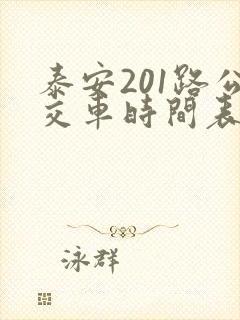 泰安201路公
交車時間表
泳群